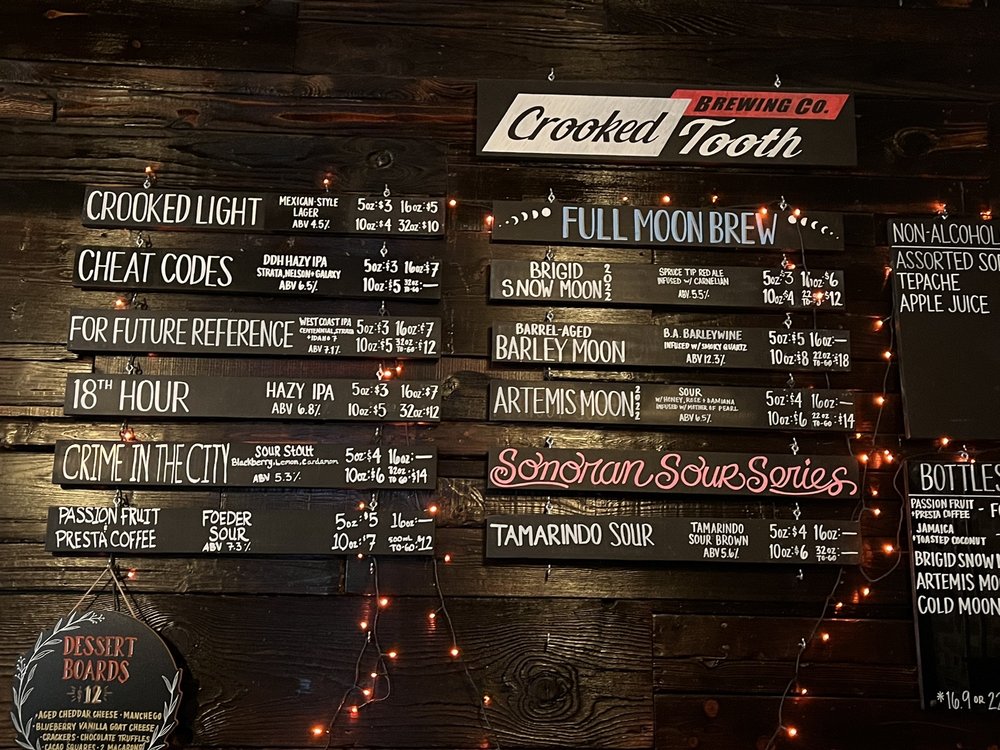 BREWING CO.
Crooked Tooth
CROOKED LIGHT
MEXICAN-STYLE
LAGER
ABV 4.5%
5oz:$3 16oz:$5
10oz:$4 32oz:$10
CHEAT CODES
DDH HAZY IPA
STRATA, NELSON + GALAXY
ABV 6.5%
5oz:$3 16oz:$7
10oz:$5 32oz:—
FOR FUTURE REFERENCE
WEST COAST IPA
CENTENNIAL, STRATA
+ IDAHO 7
ABV 7.1%
5oz:$3 16oz:$7
10oz:$5 32oz TO-GO:$12
18TH HOUR
HAZY IPA
ABV 6.8%
5oz:$3 16oz:$7
10oz:$5 32oz:$12
CRIME IN THE CITY
SOUR STOUT
Blackberry, Lemon, Cardamon
ABV 5.3%
5oz:$4 16oz:—
10oz:$6 32oz TO-GO:$14
PASSION FRUIT
PRESTA COFFEE
FOEDER
SOUR
ABV 7.3%
5oz:$5 16oz:—
10oz:$7 500mL TO-GO:$12
DESSERT
BOARDS
$12
AGED CHEDDAR CHEESE • MANCHEGO
BLUEBERRY VANILLA GOAT CHEESE
CRACKERS • CHOCOLATE TRUFFLES
CACAO SQUARES • 2 MACARONS
FULL MOON BREW
BRIGID
SNOW MOON 2022
SPRUCE TIP RED ALE
INFUSED W/ CARNELIAN
ABV 5.5%
5oz:$3 16oz:$6
10oz:$4 22oz TO-GO:$12
BARREL-AGED
BARLEY MOON
B.A. BARLEYWINE
INFUSED W/ SMOKY QUARTZ
ABV 12.3%
5oz:$5 16oz:—
10oz:$8 22oz TO-GO:$18
ARTEMIS MOON 2022
SOUR
W/ HONEY, ROSE + DAMIANA
INFUSED W/ MOTHER OF PEARL
ABV 6.5%
5oz:$4 16oz:—
10oz:$6 22oz TO-GO:$14
Sonoran Sour Series
TAMARINDO SOUR
TAMARINDO
SOUR BROWN
ABV 5.6%
5oz:$4 16oz:—
10oz:$6 32oz:—
NON-ALCOHOL
ASSORTED SO
TEPACHE
APPLE JUICE
BOTTLES
PASSION FRUIT
+PRESTA COFFEE - F
JAMAICA
+TOASTED COCONUT -
BRIGID SNOW
ARTEMIS MO
COLD MOON
*16.9 OR 22